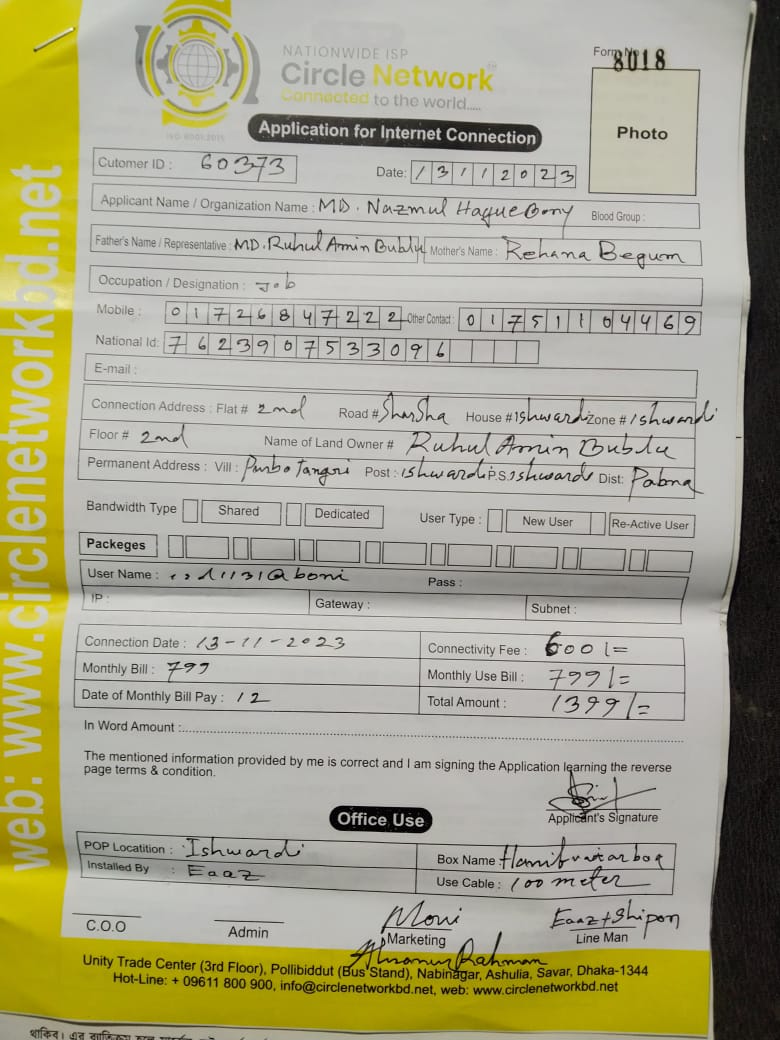 NATIONWIDE ISP
Circle Network
Connected to the world.....
ISO 9001:2015
Form No
8018
Photo
Application for Internet Connection
Cutomer ID : 60373
Date: 13112023
Applicant Name / Organization Name : MD. Nazmul Haque Bony Blood Group :
Father's Name / Representative : MD. Ruhul Amin Bublu Mother's Name : Rehana Begum
Occupation / Designation : Job
Mobile : 01726847222 Other Contact : 01751104469
National Id: 7623907533096
E-mail :
Connection Address : Flat # 2nd Road # SharSha House # Ishwardi Zone # Ishwardi
Floor # 2nd Name of Land Owner # Ruhul Amin Bublu
Permanent Address : Vill : Purbo Tangri Post : Ishwardi P.S: Ishwardi Dist: Pabna
Bandwidth Type Shared Dedicated User Type : New User Re-Active User
Packeges
User Name : Pass :
IP : Gateway : Subnet :
Connection Date : 13-11-2023 Connectivity Fee : 600/=
Monthly Bill : 799 Monthly Use Bill : 799/=
Date of Monthly Bill Pay : 12 Total Amount : 1399/=
In Word Amount :
The mentioned information provided by me is correct and I am signing the Application learning the reverse
page terms & condition.
Applicant's Signature
Office Use
POP Locatition : Ishwardi Box Name
Installed By : Eaaz Use Cable : 100 meter
Moni Eaaz + Shipon
C.O.O Admin Marketing Line Man
Rahman
Unity Trade Center (3rd Floor), Pollibiddut (Bus Stand), Nabinagar, Ashulia, Savar, Dhaka-1344
Hot-Line: + 09611 800 900, info@circlenetworkbd.net, web: www.circlenetworkbd.net
web: www.circlenetworkbd.net